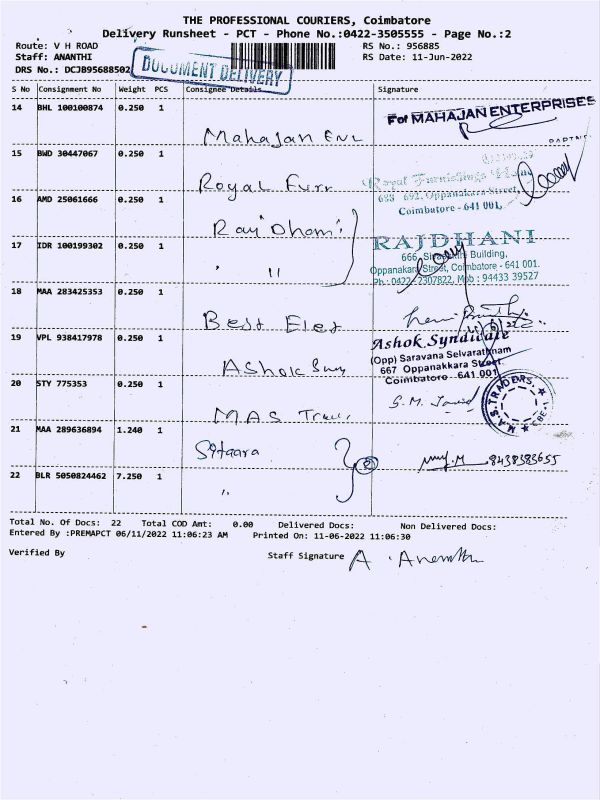 THE PROFESSIONAL COURIERS, Coimbatore
Delivery Runsheet - PCT - Phone No.:0422-3505555 - Page No.:2
Route: V H ROAD
RS No.: 956885
Staff: ANANTHI
RS Date: 11-Jun-2022
DRS No.: DCJB95688502
DOCUMENT DELIVERY
S No Consignment No Weight PCS Consignee Details Signature
14 BHL 100100874 0.250 1
For MAHAJAN ENTERPRISES
Mahajan Ent
15 BWD 30447067 0.250 1
Royal Furn
Royal Furnishings
688 692, Oppanakara Street,
Coimbatore - 641 001.
16 AMD 25061666 0.250 1
Raj Dhani
17 IDR 100199302 0.250 1
" "
RAJDHANI
666, Building,
Oppanakara Street, Coimbatore - 641 001.
Ph : 0422 - 2307822, Mob : 94433 39527
18 MAA 283425353 0.250 1
Best Elet
19 VPL 938417978 0.250 1
Ashok Syn
Ashok Syndicate
(Opp) Saravana Selvarathnam
667 Oppanakkara Street
Coimbatore - 641 001
20 STY 775353 0.250 1
MAS
M.A.S. TRADERS
21 MAA 289636894 1.240 1
Sitaara
2
8438383655
22 BLR 5050824462 7.250 1
"
Total No. Of Docs: 22 Total COD Amt: 0.00 Delivered Docs: Non Delivered Docs:
Entered By :PREMAPCT 06/11/2022 11:06:23 AM Printed On: 11-06-2022 11:06:30
Verified By
Staff Signature A. Ananthi